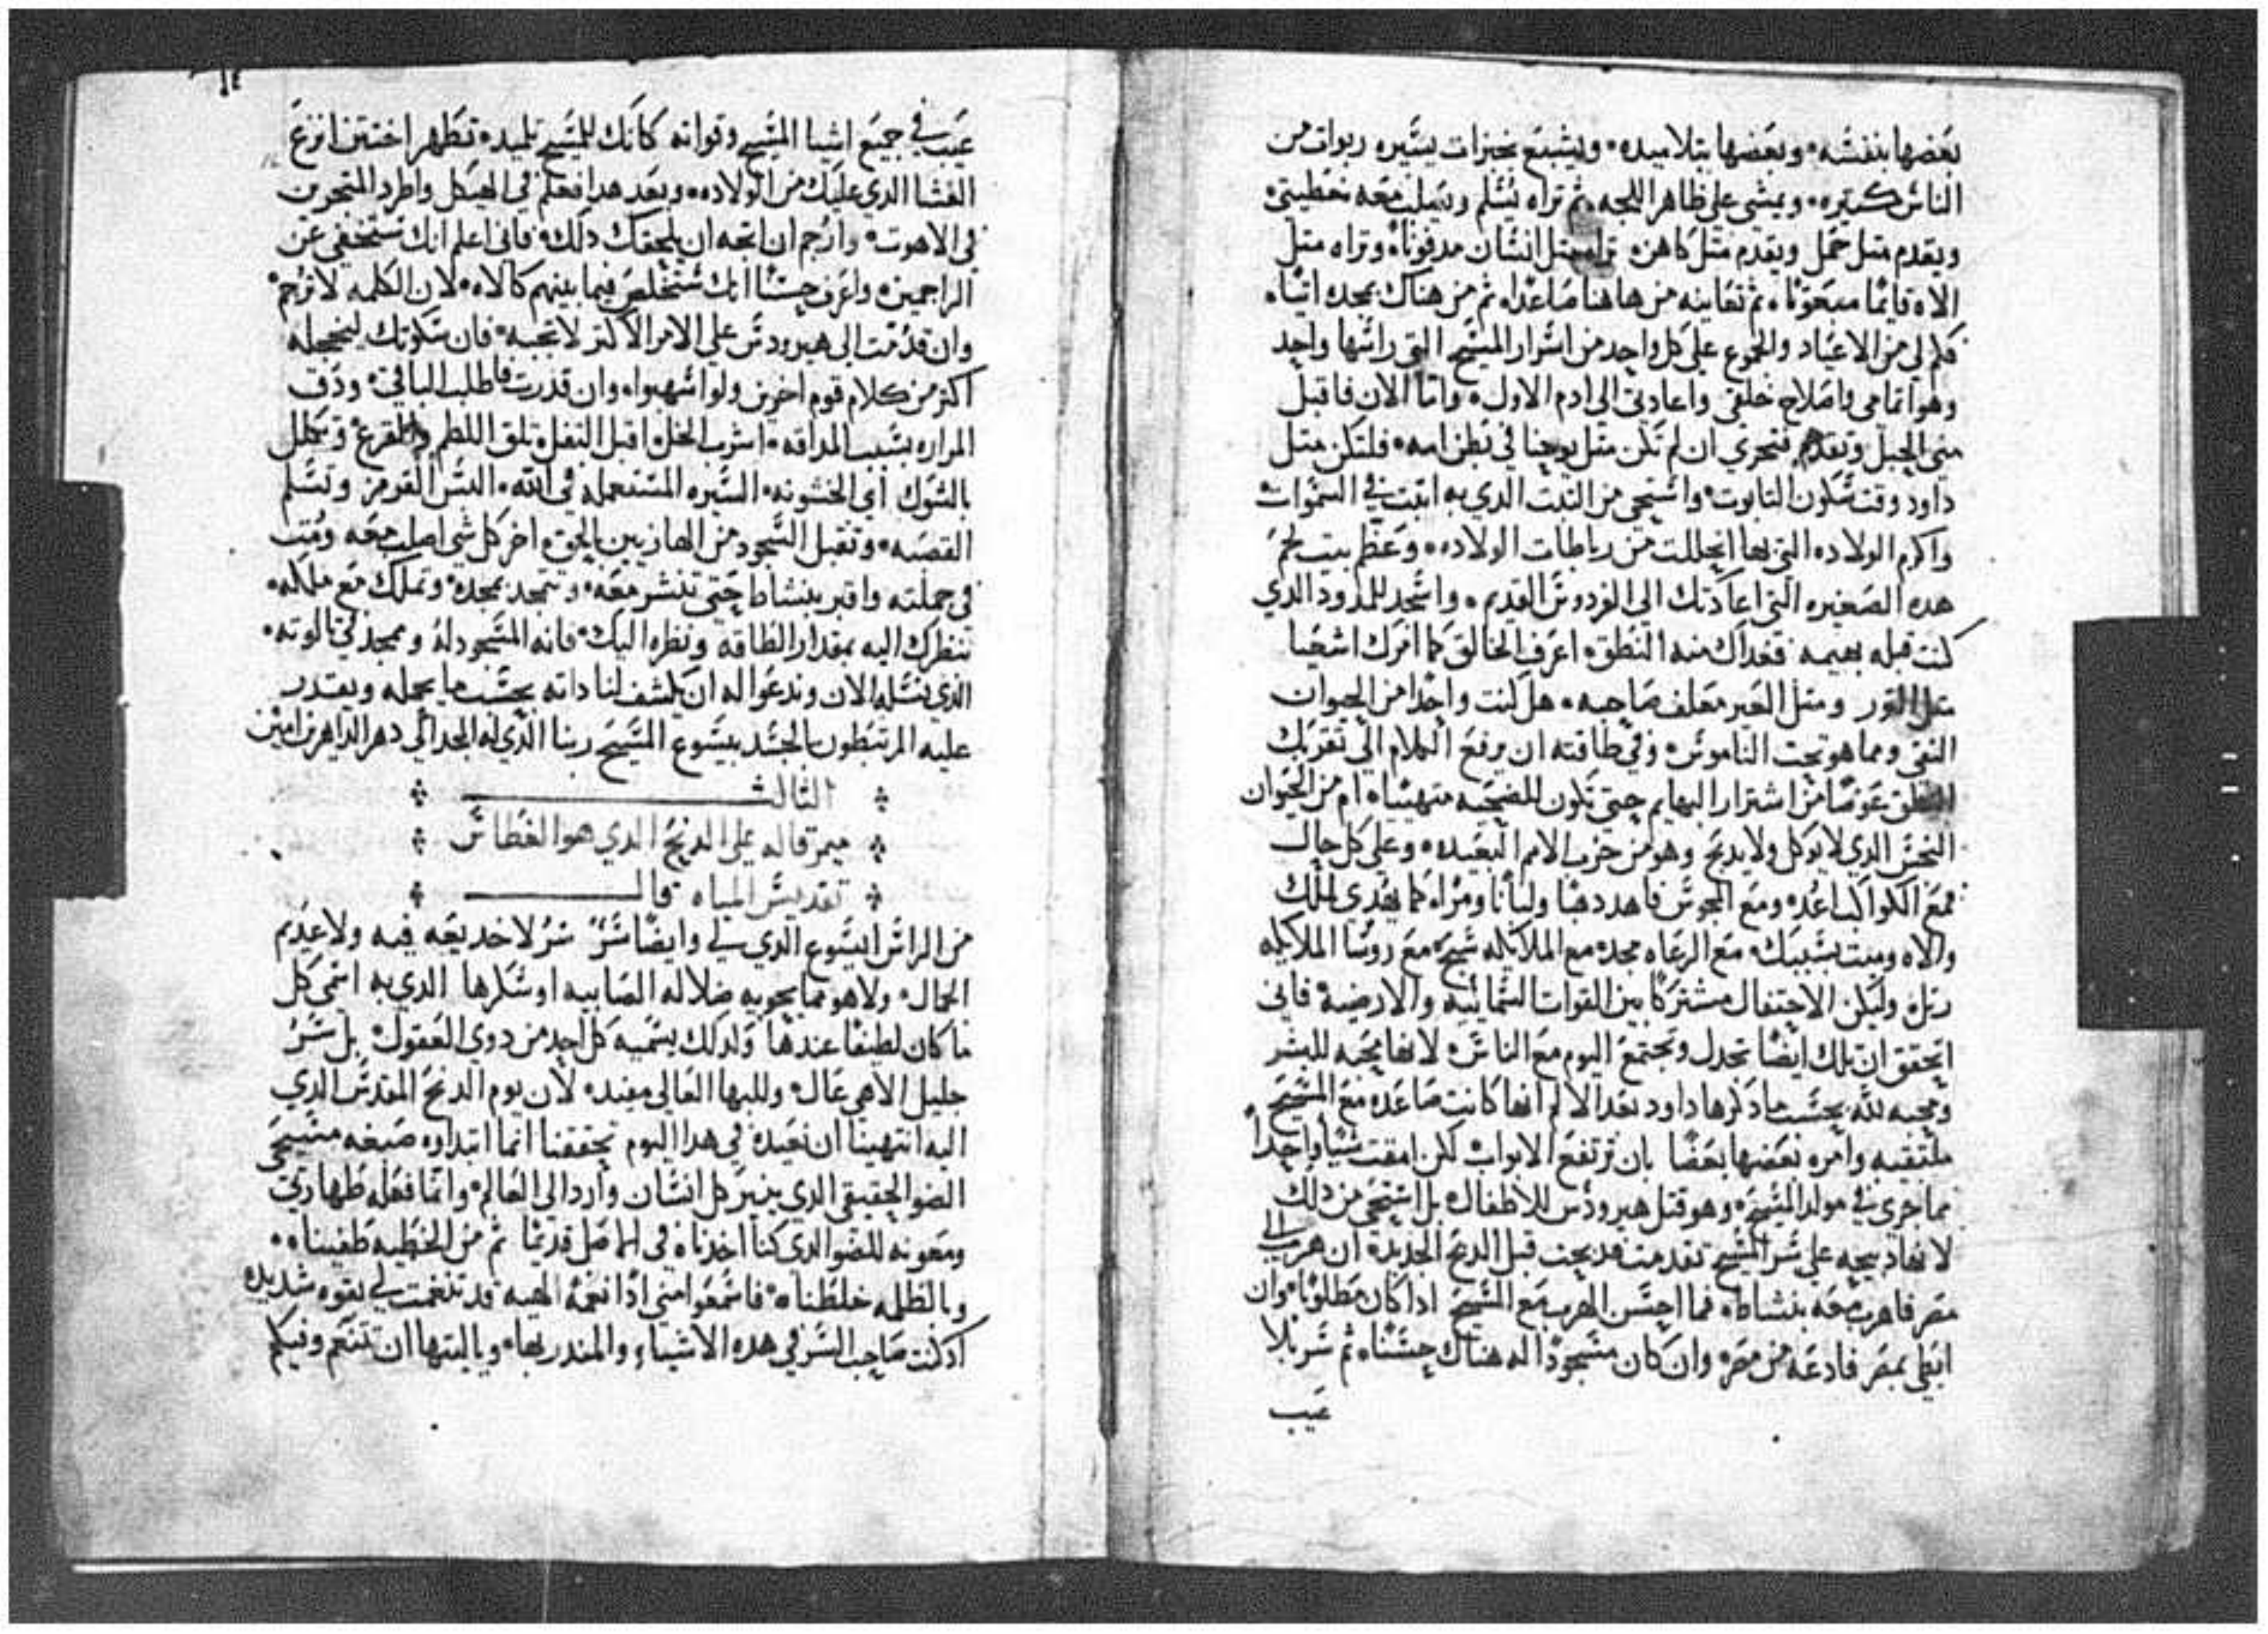 بعضها بنفسه، وبعضها بتلاميده، ويشبع بخبزات يسيره ربوات من
الناس كتيره، ويمشي علي ظاهر اللجه، ثم تراه يسلم ويصلب معه خطيتي
ويقدم متل حمل ويقدم متل كاهن، تراه متل انسان مدفونا، وتراه متل
الاه قايما مبعوتا، ثم تعاينه من هاهنا صاعدا، ثم من هناك بمجده اتيا،
فكم لي من الاعياد والجموع علي كل واحد من اسرار المسيح التي راسها واحد
وهو اتمامي واصلاح خلقي واعادتي الي ادم الاول، واما الان فاقبل
مني الحبل وتقدم فتحري ان لم تكن متل يوحنا في بطن امه، فلتكن متل
داود وقت سكون التابوت، واستحي من التبت الدي به اتبت في السموات
واكرم الولاده التي بها انحللت من رباطات الولاده، وعظم بيت لحم
هده الصغيره التي اعادتك الي الفردوس القديم، واسجد للمدود الدي
كنت قبله بهيمه فغداك منه النطق، اعرف الخالق كما امرك اشعيا
متل التور ومتل العير معلف صاحبه، هل كنت واحدا من الحيوان
النقي ومما هو تحت الناموس، وفي طاقته ان يرفع الكلام الي تقريبك
النطق عوضا من اشترار البهايم حتي تكون للضحيه متهييا، ام من الحيوان
النجس الدي لا يوكل ولا يدبح وهو من حزب الامم البعيده، وعلي كل حال
فمع الكواكب اعد، ومع المجوس فاهد دهبا ولبانا ومرا، كما يهدي لملك
والاه وميت بسببك، مع الرعاه مجد، مع الملايكه سبح، مع روسا الملايكه
رتل، وليكن الاحتفال مشتركا بين القوات السمائيه والارضيه، فاني
اتحقق ان تلك ايضا تجدل وتجتمع اليوم مع الناس، لانها محبه للبشر
ومحبه لله بحسب ما دكرها داود بعد الالم انها كانت صاعده مع المسيح
ملتقيه وامره بعضها بعضا بان ترتفع الابواب لكن امقت شيا واحدا
مما جري في مولد المسيح، وهو قتل هيرودس للاطفال، بل استحي من دلك
لانها دبيحه علي سر المسيح تقدمت فدبحت قبل الدبح الجديده، ان هرب الي
مصر فاهرب معه بنشاط، فما احسن الهرب مع المسيح ادا كان مطلوبا، وان
ابقي بمصر فادعه من مصر، وان كان مسجودا له هناك حسنا، ثم سر بلا
عيب
عيب في جميع اشيا المسيح وقواته كانك للمسيح تلميد، تطهر اختتن انزع
الغشا الدي عليك من الولاده، وبعد هدا فعلم في الهيكل واطرد المتجرين
في الاهوت، وارجم ان اتجه ان يلحقك دلك، فاني اعلم انك ستختفي عن
الراجمين، واعرف حسنا انك ستخلص فيما بينهم كالاه، لان الكلمه لا ترجم
وان قدمت الي هيرودس علي الامر الاكتر لا تجبه، فان سكوتك ليخجله
اكتر من كلام قوم اخرين ولو اسهبوا، وان قدرت فاطلب الباقي، ودق
المراره بسبب المداقه، اشرب الخل، اقبل التفل، تلق اللطم والقرع، وتكلل
بالشوك اي الخشونه، السيره المستعمله في الله، البس القرمز وتسلم
القصبه، وتقبل السجود من الهازيين بالحق، اخر كل شي اصلب معه ومت
في جملته واقبر بنشاط حتي تنشر معه، وتتمجد بمجده، وتملك مع ملكه،
تنظرك اليه بمقدار الطاقه ونظره اليك، فانه المسجود له وممجد في تالوته،
الدي نسله الان وندعوا له ان يكشف لنا داته بحسب ما يحمله ويقتدر
عليه المرتبطون بالجسد بيسوع المسيح ربنا الدي له المجد الي دهر الداهرين امين
الثالث
ميمر قاله علي الدنح الدي هو الغطاس
تقديس المياه قال
من الراس ايسوع الدي لي وايضا سر، سر لا خديعه فيه ولا عديم
الجمال، ولا هو مما يحويه ضلاله الصابيه او سكرها الدي به اسمي كل
ما كان لطيفا عندها ولدلك يسميه كل احد من دوي العقول، بل سر
جليل الاهي عال، وللبها العالي مفيد، لان يوم الدنح المقدس الدي
اليه انتهينا ان نعيده في هدا اليوم بحققنا انما ابتداوه صبغه مسيحي
الضو الحقيقي الدي ينير كل انسان وارد الي العالم، وانما فعله طهارتي
ومعونه للضو الدي كنا اخدناه في الاصل قديما ثم من الخطيه طفيناه،
وبالظلمه خلطناه، فاسمعوا مني ادا نغمه الهيه قد تنغمت لي بقوه شديده
اد كنت صاحب السر في هده الاشياء والمندر بها، وياليتها ان تتنغم وفيكم